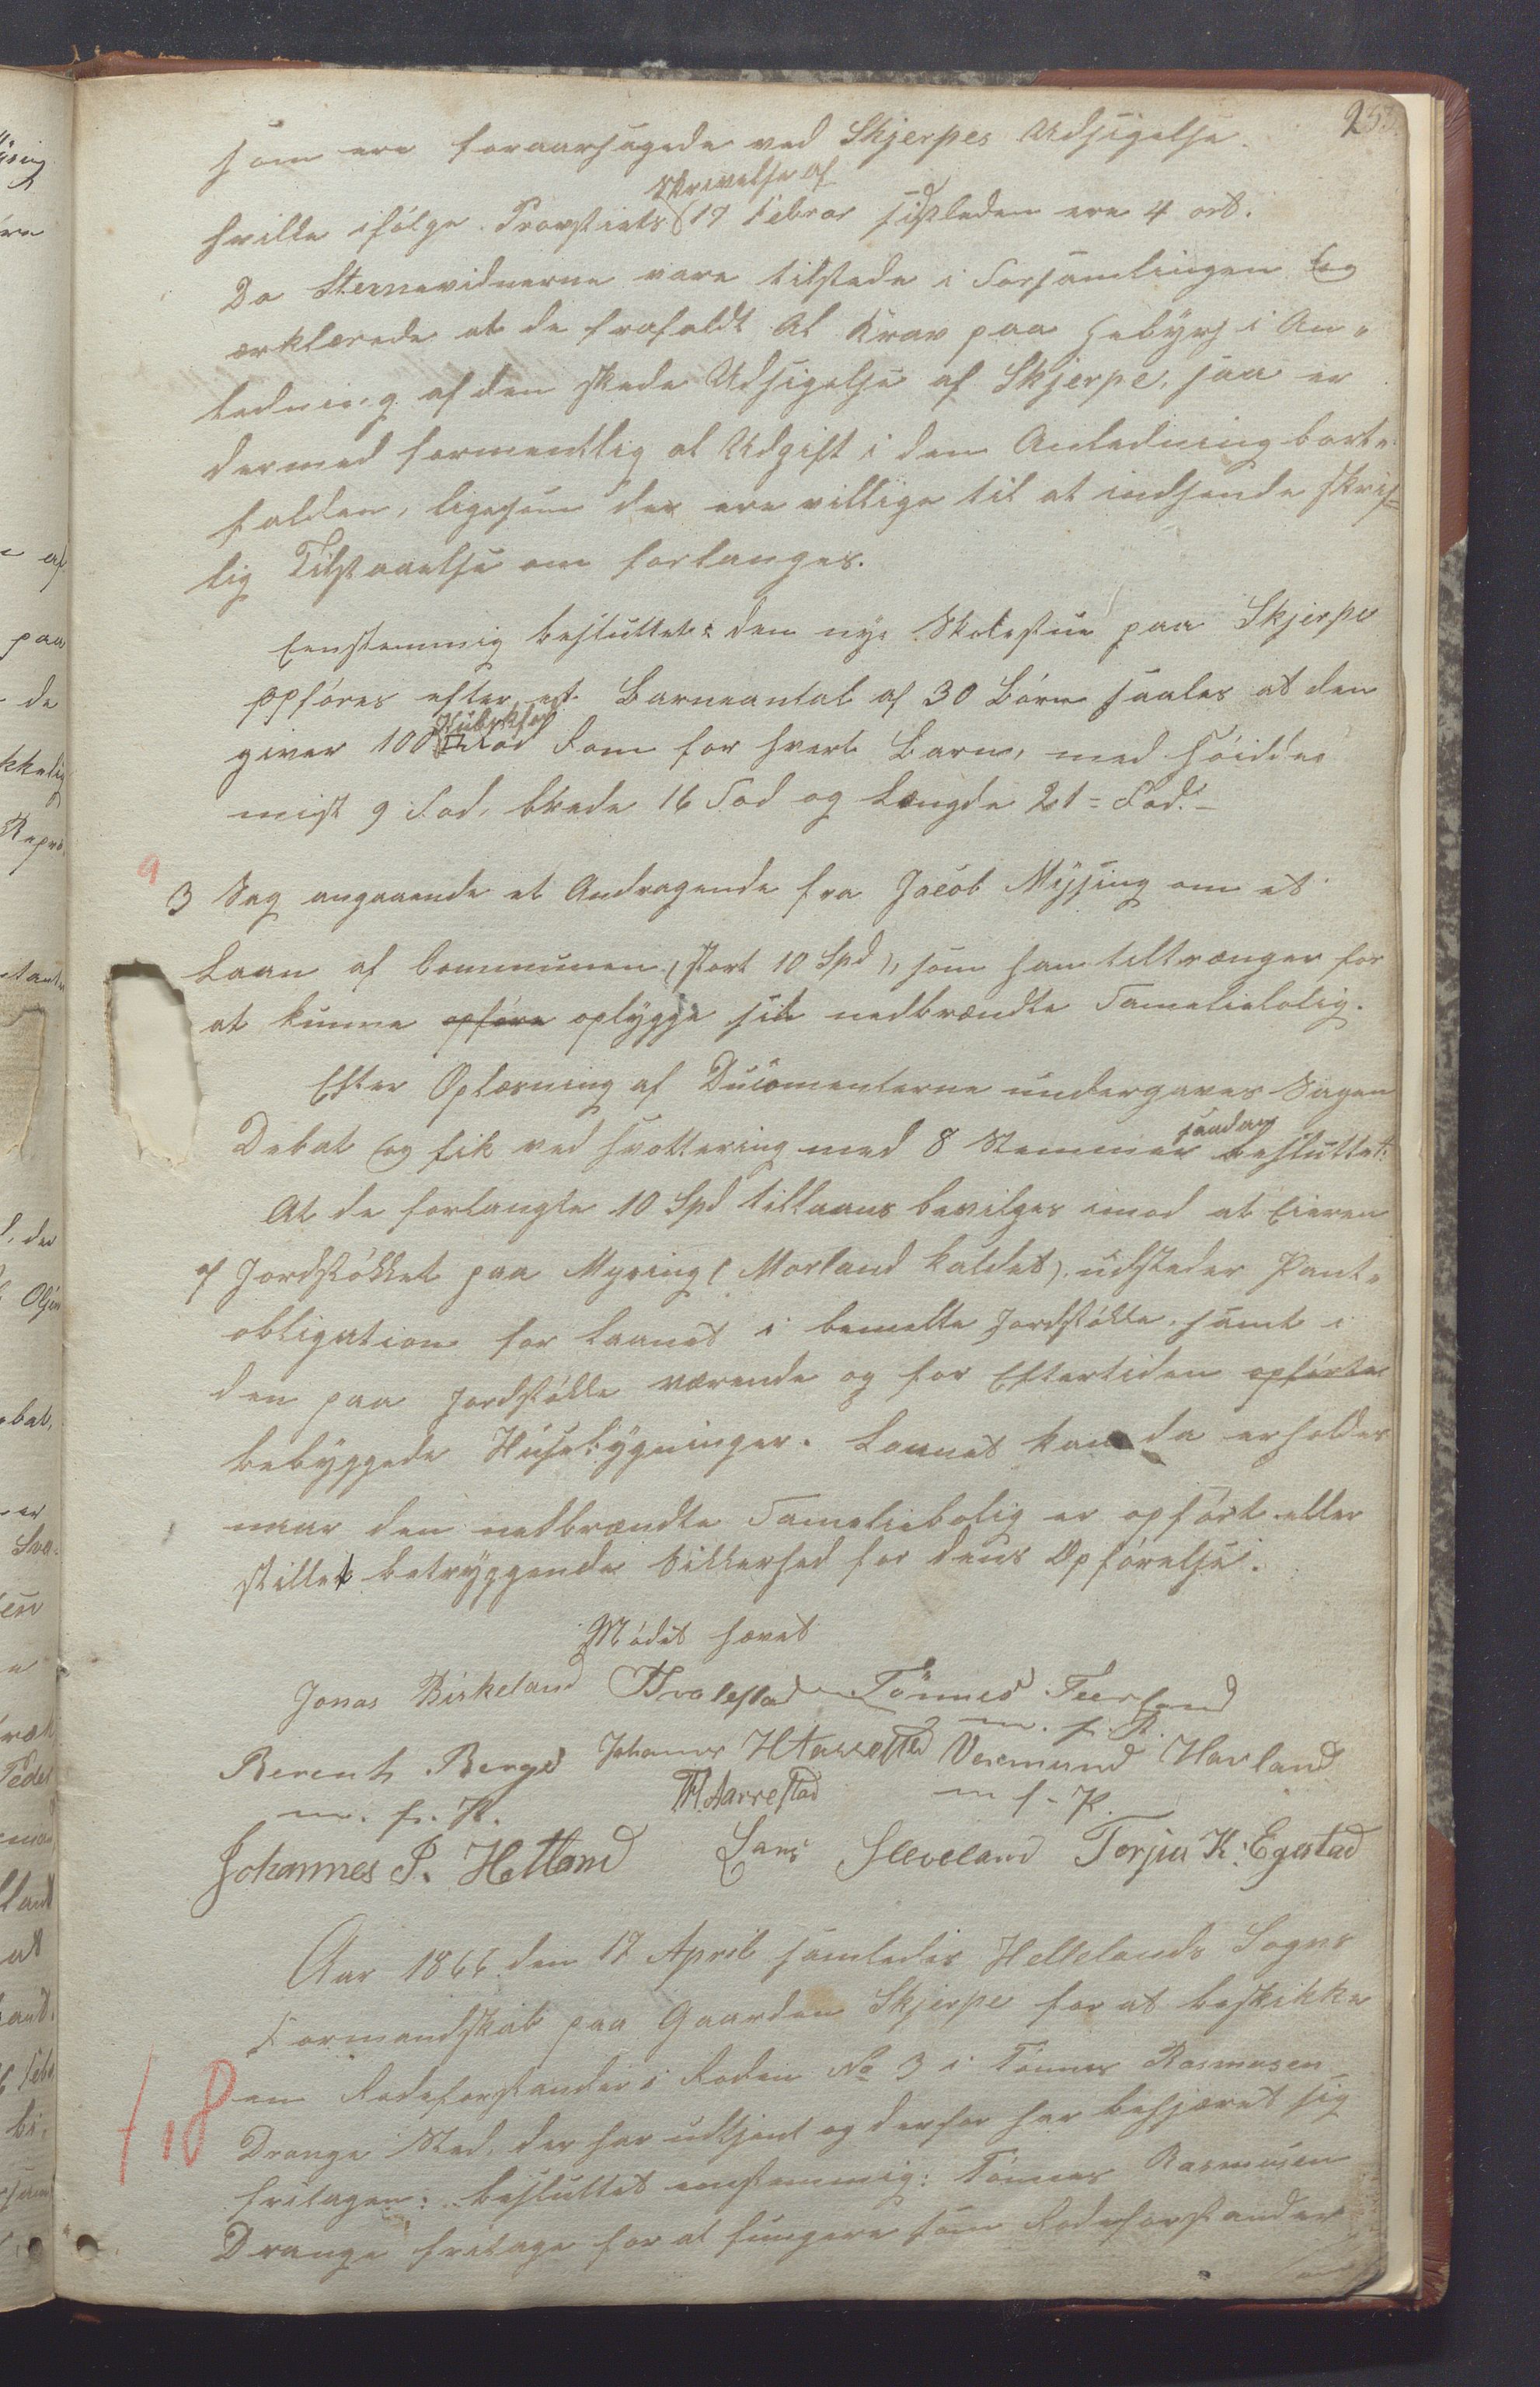 253
som ere foraarsagede ved Skjerpes Udsigelse.
hvilke ifölge Provstiets Skrivelse af 17 Februar sidstleden ere 4 ort.
Da Stevnevidnerne vare tilstede i Forsamlingen og
erklærede at de frafaldt al Krav paa Gebyrs i An-
ledning af den skede Udsigelse af Skjerpe, saa er
dermed formentlig al Udgift i den Anledning borte
falden, ligesom der ere villige til at indsende skrif-
lig Tilstaaelse om forlanges.
Eenstemmig besluttet: den nye Skolestue paa Skjerpe
opföres efter et Barneantal af 30 Börn saales at den
giver 100 Kubikfod Rom for hvert Barn, med Höidde
mist 9 Fod, brede 16 Fod og Længde 21 = Fod. –
9
3 Sag angaaende et Andragende fra Jacob Myssing om et
Laan af Communen (stort 10 Spd), som han tiltrænger for
at kunne opföre opbygge sit nedbrændte Familiebolig.
Efter Oplæsning af Documenterne undergaves Sagen
Debat og fik ved Hvottering med 8 Stemmer saadan besluttet:
At de forlangte 10 Spd tillaans bevilges imod at Eieren
af Jordstökket paa Mysing (Morland kaldet) udsteder Pant-
obligation for Laanet i bemelte Jordstökke, samt i
den paa Jordstökke værende og for Eftertiden opförte
bebyggede Husebygninger. Laanet kan da erholdes
naar den nedbrændte Familiebolig er opfört eller
stillet betryggende Sikkerhed for dens Opförelse.
Mödet hævet
Jonas Birkeland Hvalestad Tönnes Teerland
m. f. P.
Berent Berge Johannes H Aarrestad Vermund Havland
m. f. P. TH. Aarrestad m f. P.
Johannes P. Hetland Lars Sleveland Torjus K. Egestad
Aar 1866 den 17 April samledes Hellelands Sogns
Formandskab paa Gaarden Skjerpe for at beskikke
118
en Rodeforstander i Roden No 3 i Tönnes Rasmusen
Drange Sted, der har udtjent og derfor har begjæret sig
fritagen: besluttet enstemmig: Tönnes Rasmusen
Drange fritage for at fungere som Rodeforstander